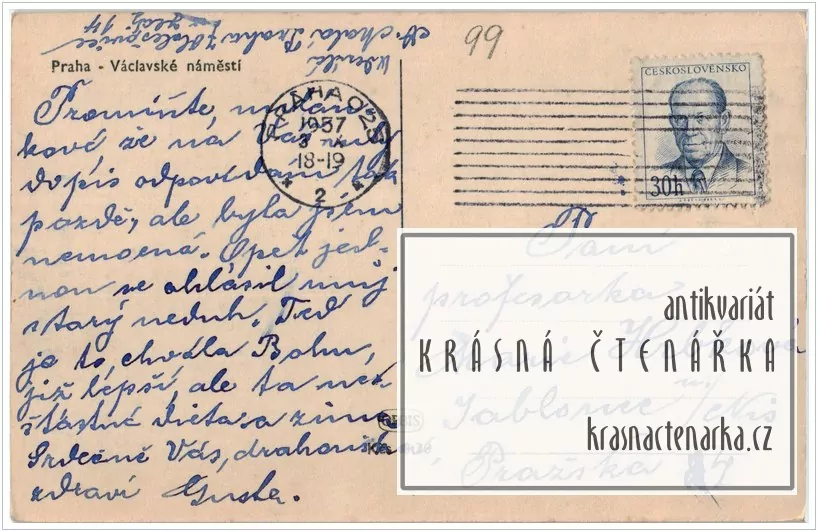 99
Praha - Václavské náměstí
ČESKOSLOVENSKO
30h
PRAHA 025
1957
18-19
2
Promiňte,
že na Váš milý
dopis odpovídám tak
pozdě, ale byla jsem
nemocná. Opět jed-
nou se ohlásil můj
starý neduh. Teď
je to, chvála Bohu,
již lepší, ale ta neš-
ťastná dieta a zima
Srdečně Vás, drahoušku
zdraví Gusta.
Paní
profesorka
Marie
Jablonec n/Nis
Pražská
antikvariát
KRÁSNÁ ČTENÁŘKA
krasnactenarka.cz